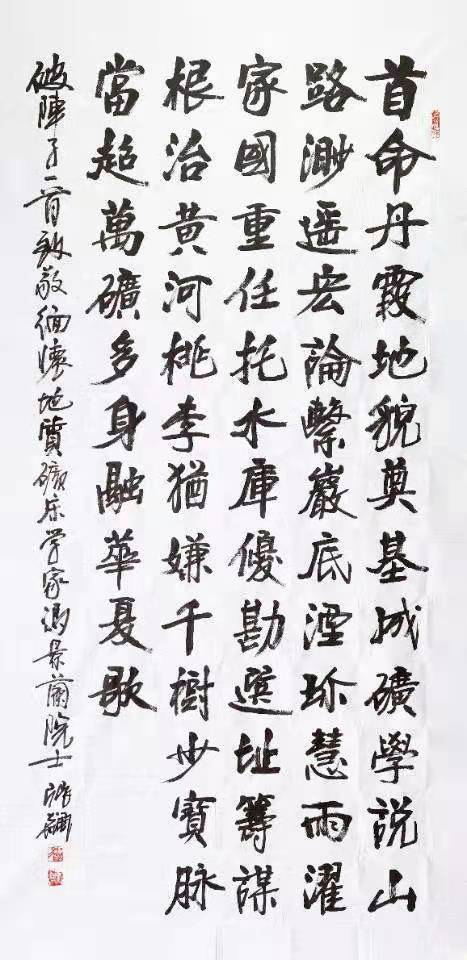 首命丹霞地貌奠基城礦學說山
路渺遥宏論繫巖底湮珎慧雨濯
家國重任托水庫優勘選址籌謀
根治黄河桃李猶嫌千樹少寶脉
當超萬礦多身融華夏歌
破陣子一首致敬缅懷地質礦床学家冯景蘭院士